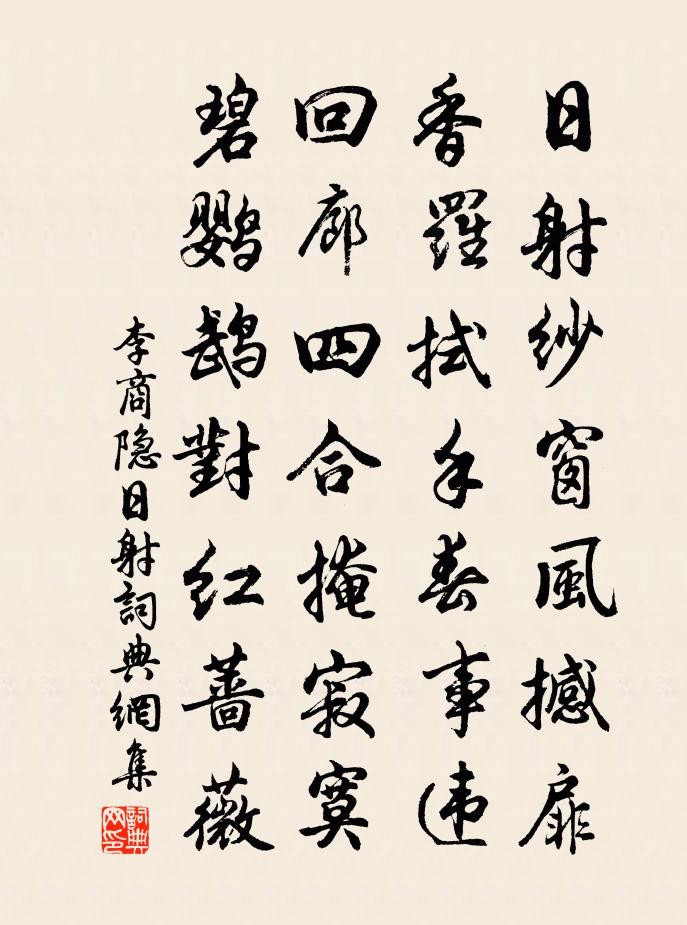 日射紗窗風撼扉
香羅拭手春事違
回廊四合掩寂寞
碧鹦鵡對紅薔薇
李商隐日射詞典網集
詞典网印